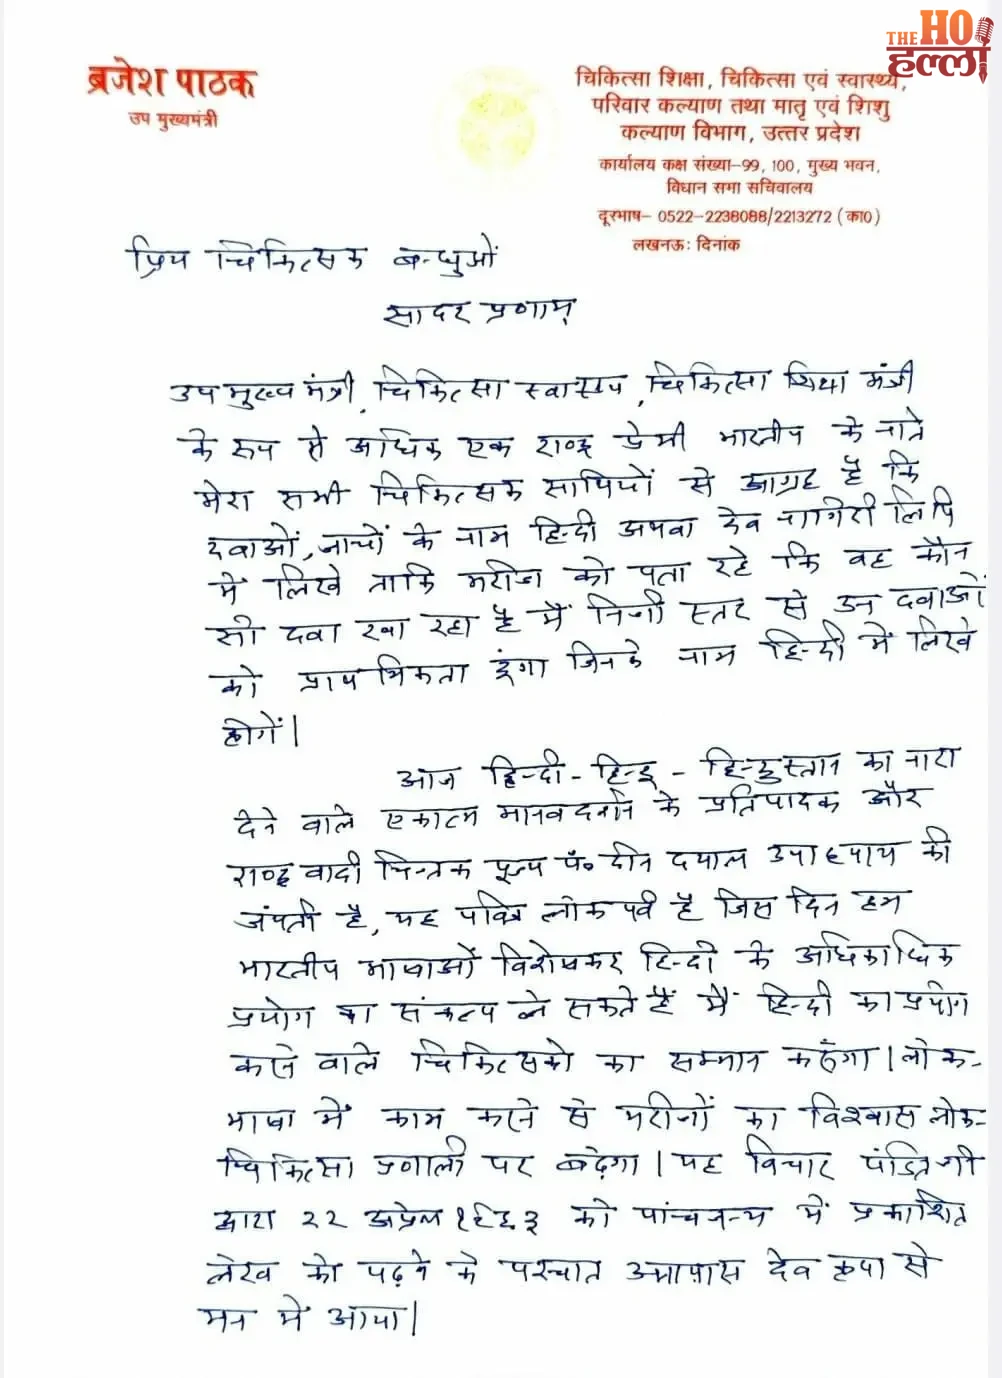 THE HO हल्ला
ब्रजेश पाठक
उप मुख्यमंत्री
चिकित्सा शिक्षा, चिकित्सा एवं स्वास्थ्य,
परिवार कल्याण तथा मातृ एवं शिशु
कल्याण विभाग, उत्तर प्रदेश
कार्यालय कक्ष संख्या–99, 100, मुख्य भवन,
विधान सभा सचिवालय
दूरभाष– 0522–2238088/2213272 (का0)
लखनऊ: दिनांक
प्रिय चिकित्सक बन्धुओं
सादर प्रणाम्
उप मुख्य मंत्री, चिकित्सा स्वास्थ्य, चिकित्सा शिक्षा मंत्री
के रूप से अधिक एक राष्ट्र प्रेमी भारतीय के नाते
मेरा सभी चिकित्सक साथियों से आग्रह है कि
दवाओं, जाचों के नाम हिन्दी अथवा देव नागिरी लिपि
में लिखे ताकि मरीज को पता रहे कि वह कौन
सी दवा खा रहा है मैं निजी स्तर से उन दवाओं
को प्राथमिकता दूंगा जिनके नाम हिन्दी में लिखे
होगें।
आज हिन्दी - हिन्दू - हिन्दुस्तान का नारा
देने वाले एकात्म मानव दर्शन के प्रतिपादक और
राष्ट्रवादी चिन्तक पूज्य पं० दीन दयाल उपाध्याय की
जंयती है, यह पवित्र लोकपर्व है जिस दिन हम
भारतीय भाषाओं विशेषकर हिन्दी के अधिकाधिक
प्रयोग का संकल्प ले सकते हैं मैं हिन्दी का प्रयोग
करने वाले चिकित्सको का सम्मान करूंगा। लोक-
भाषा में काम करने से मरीजों का विश्वास लोक-
चिकित्सा प्रणाली पर बढ़ेगा। यह विचार पंडित जी
द्वारा २२ अप्रैल १९६३ को पांचजन्य में प्रकाशित
लेख को पढ़ने के पश्चात अनायास देव कृपा से
मन में आया।